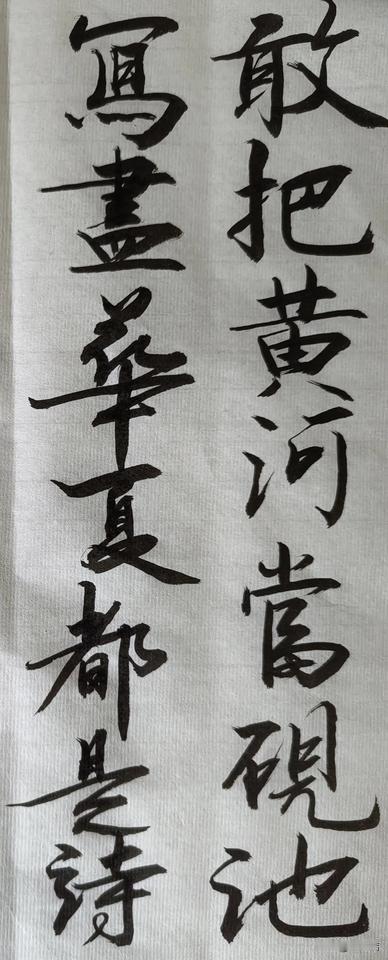 敢把黄河當硯池
寫盡華夏都是詩